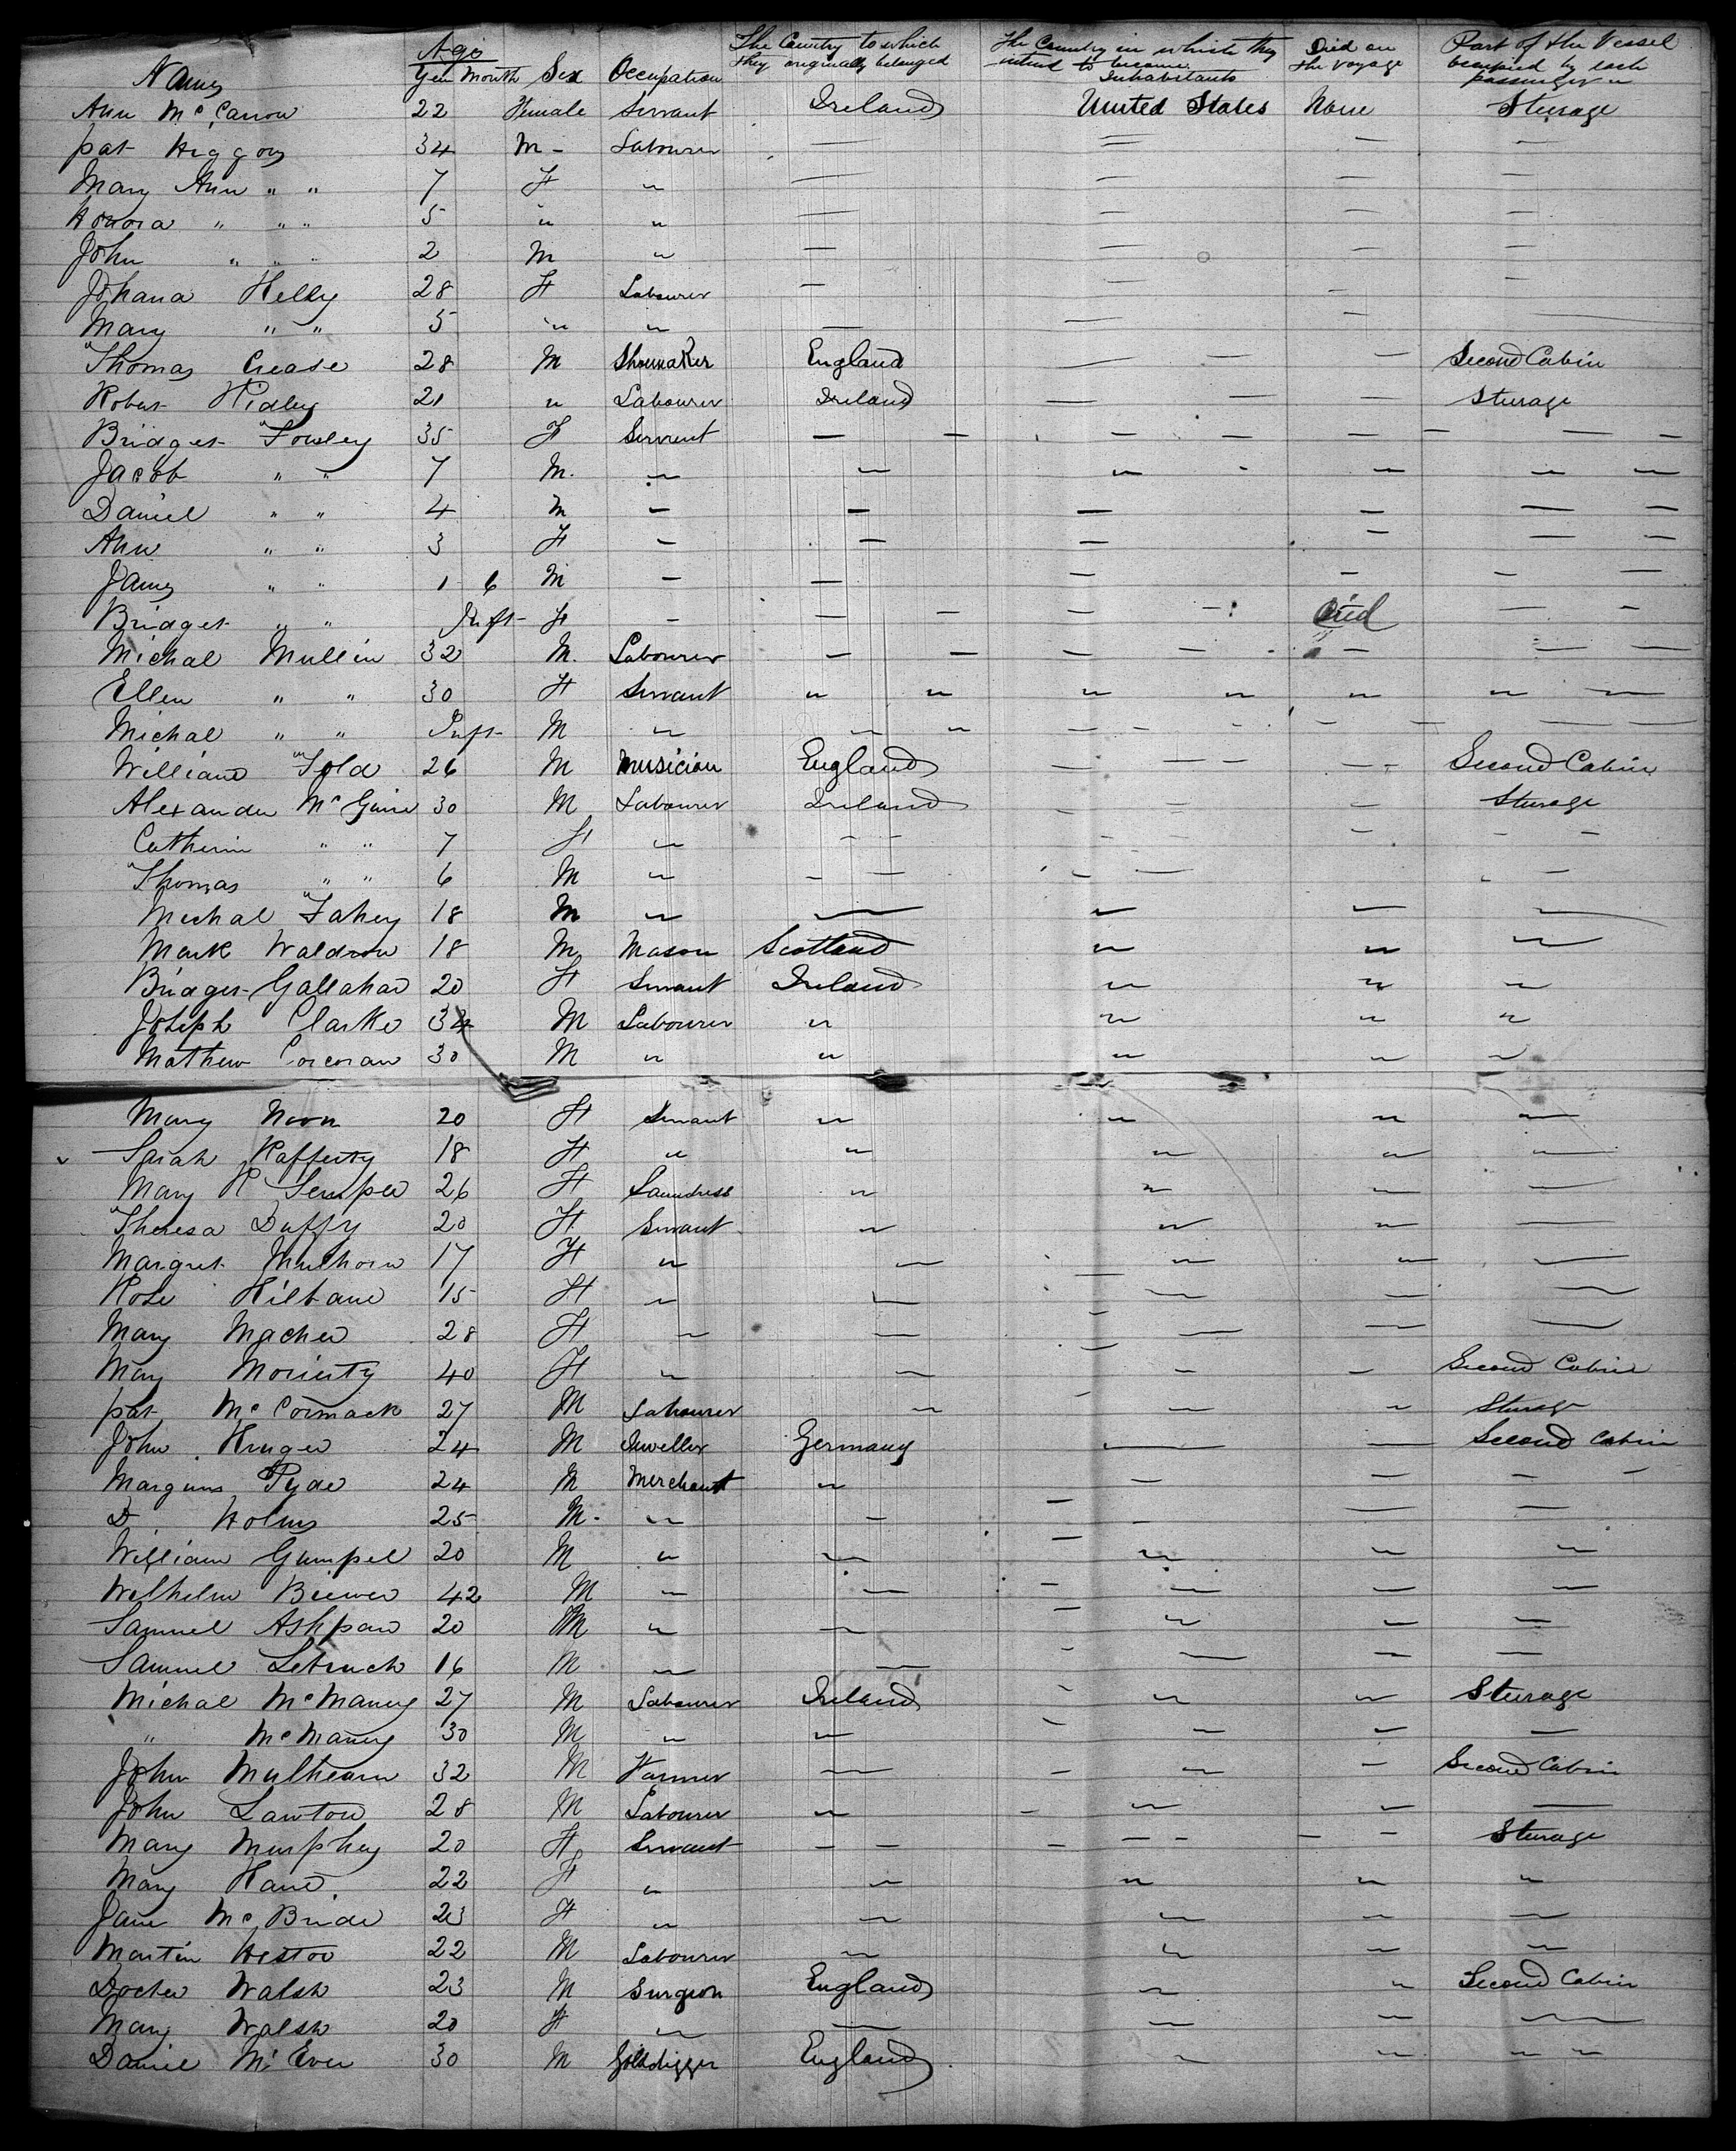 Names Age Yrs Month Sex Occupation The Country to which they originally belonged The Country in which they intend to become Inhabitants Died on the voyage Part of the Vessel occupied by each passenger
Ann McCarron 22 Female Servant Ireland United States None Steerage
pat Higgons 34 M - Labourer — — — —
Mary Ann " " 7 F " — — — —
Honora " " " 5 " " — — — —
John " " " 2 M " — — — —
Johana Kelly 28 F Labourer — — — —
Mary " " 5 " " — — — —
Thomas Crease 28 M Shoemaker England — — — Second Cabin
Robert Ridley 21 " Labourer Ireland — — — Steerage
Bridget Fowley 35 F Servent — — — — — — — —
Jacob " " 7 M. " — — — — —
Daniel " " 4 M — — — — — —
Ann " " 3 F — — — — — —
James " " 1 6 M — — — — — —
Bridget " " Inft F — — — — — Died — —
Michal Mullin 32 M. Labourer — — — — — — —
Ellen " " 30 F Servant " " " " " " —
Michal " " Inft M " " " — — — — — —
William Fold 26 M Musician England — — — — — Second Cabin
Alexander McGuire 30 M Labourer Ireland — — — Steerage
Catherin " " 7 F " — — — — —
Thomas " " 6 M " — — — — — —
Michal Fahey 18 M " — " — —
Mark Waldron 18 M Mason Scotland " " "
Bridget Gallahar 20 F Servant Ireland " " "
Joseph Clarke 34 M Labourer " " " "
Mathew Corcoran 30 M " " " " "
Mary Noon 20 F Servant " " " —
Sarah Rafferty 18 F " " " " —
Mary K Semple 26 F Laundress " " — —
Theresa Duffy 20 F Servant " " " —
Margret Mulhorn 17 F " — " " —
Rose Kilbane 15 F " — — — —
Mary Macher 28 F " — — — —
Mary Moriarty 40 F " — — — Second Cabin
pat McCormack 27 M Labourer " — " Steerage
John Kruger 24 M Jweller Germany — — Second Cabin
Pyde 24 M Merchant " — — — —
D. Holms 25 M. " — — — — —
William Gumpel 20 M " — " " "
Wilhelm Biewer 42 M — — — — — —
Samuel Ashpaw 20 M " — — " — —
Samuel 16 M " — — — — —
Michal McManey 27 M Labourer Ireland — " " Steerage
" McManey 30 M " " — — — —
John Mulhearn 32 M Farmer — — — — Second Cabin
John Lawton 28 M Labourer " — — — —
Mary Murphey 20 F Servant — — — — — — — Steerage
Mary Kane 22 F " " " " "
Jane McBride 23 F " — — — —
Martin Hestor 22 M Labourer — " — —
Docter Walsh 23 M Surgeon England " " Second Cabin
Mary Walsh 20 F " — — — —
Daniel McEver 30 M Golddigger England " " " "